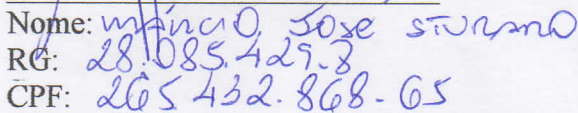 Nome: Márcio José Siurano
RG: 28.085.429-8
CPF: 265.432.868-65